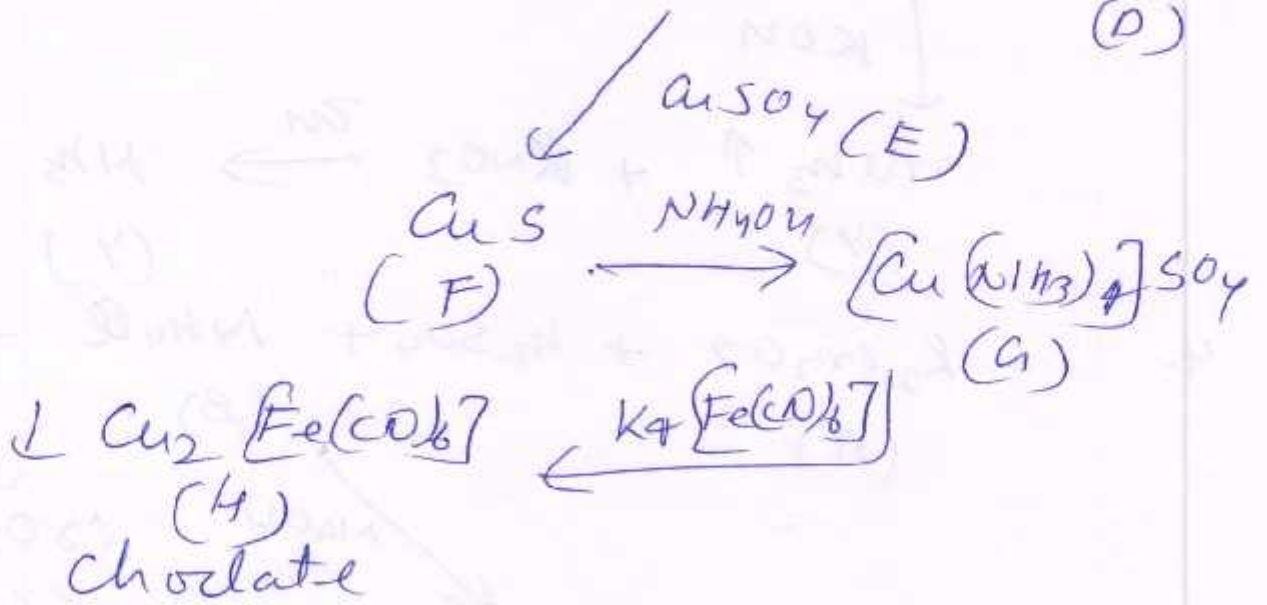 (D)
CuSO4 (E)
CuS NH4OH
(F) [Cu(NH3)4]SO4
(G)
↓ Cu2[Fe(CN)6] K4[Fe(CN)6]
(H)
Choclate